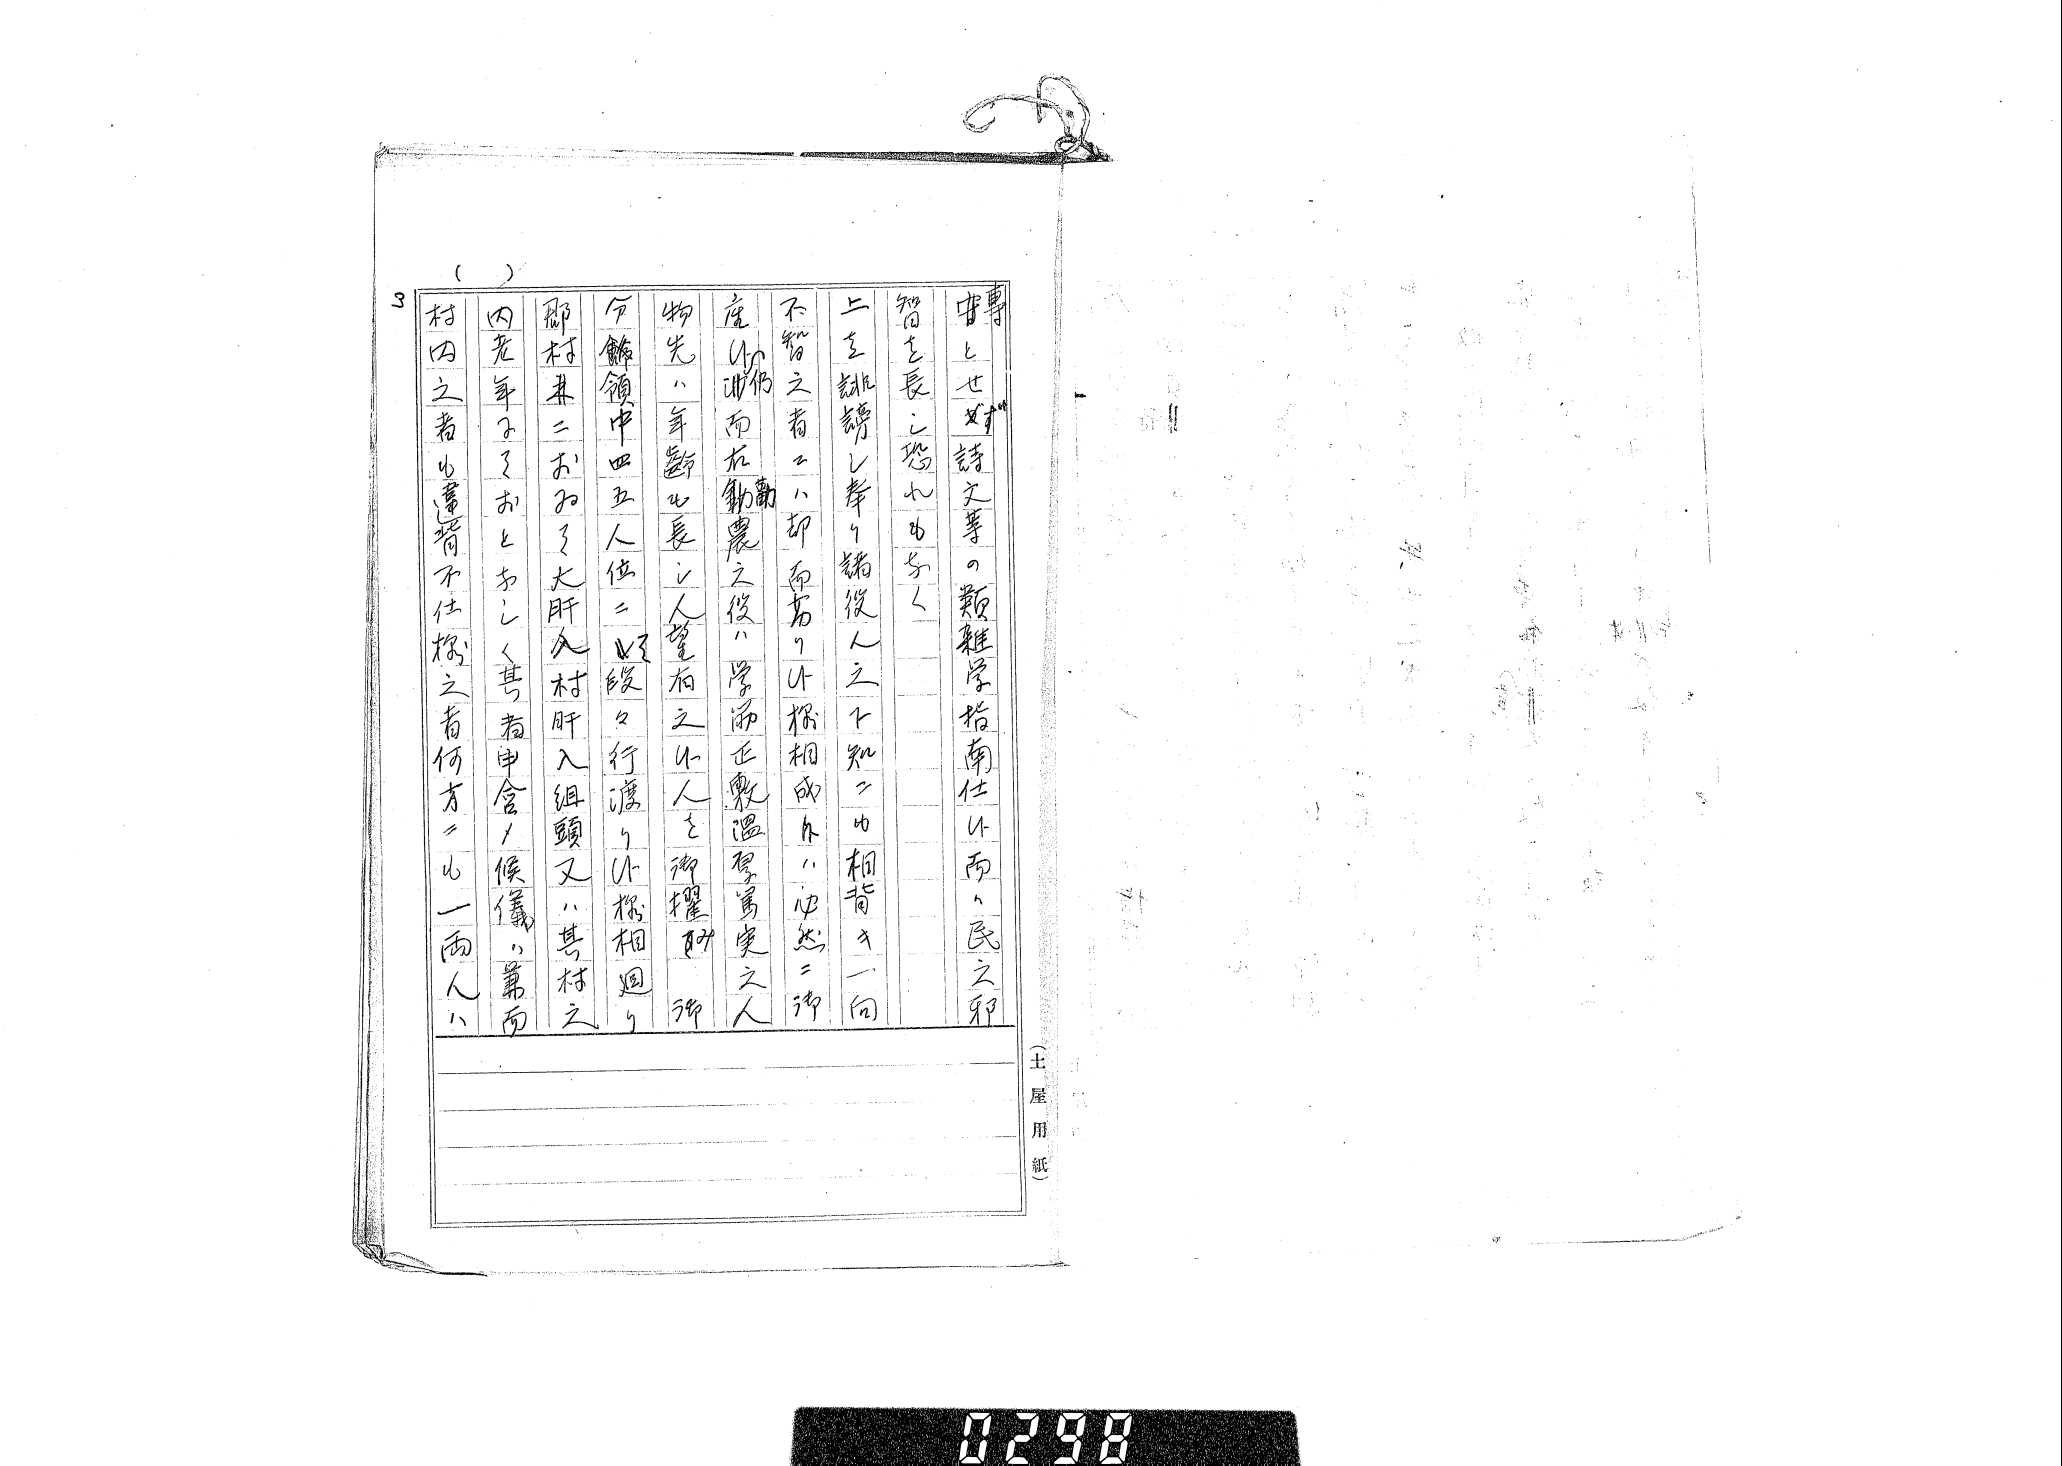 専とせず詩文等の類雑学指南仕候而ハ民之邪
智を長し恐れもなく
上を誹謗し奉り諸役人之下知ニも相背キ一向
不智之者ニハ却而劣り候様相成候ハ必然ニ御
座候仍而右勧農之役ハ学筋正敷温厚篤実之人
物先ハ年齢も長し人望有之候人を御撰 御
分領中四五人位ニ段々行渡り候様相廻り
郡村ニおゐて大肝入村肝入組頭又ハ其村之
内老年ニておとなしく其者申含メ候儀ハ兼而
村内之者も違背不仕様之者何方ニも一両人ハ
( )
3
(土屋用紙)
0298